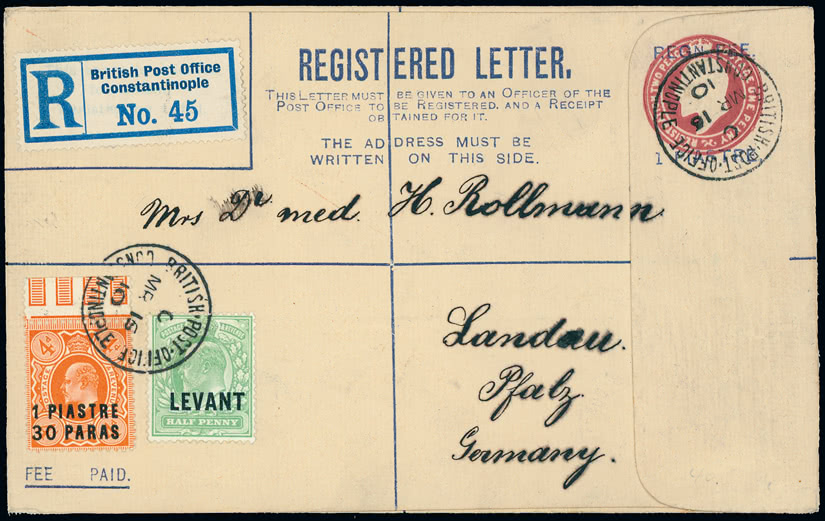 R
British Post Office
Constantinople
No. 45
REGISTERED LETTER.
THIS LETTER MUST BE GIVEN TO AN OFFICER OF THE
POST OFFICE TO BE REGISTERED, AND A RECEIPT
OBTAINED FOR IT.
THE ADDRESS MUST BE
WRITTEN ON THIS SIDE.
BRITISH·POST·OFFICE CONSTANTINOPLE
C
MR 15
10
Mrs Dr med. H. Rollmann
Landau.
Pfalz.
Germany.
BRITISH·POST·OFFICE CONSTANTINOPLE
C
MR 15
10
4d
POSTAGE
1 PIASTRE
30 PARAS
LEVANT
HALF PENNY
FEE PAID.